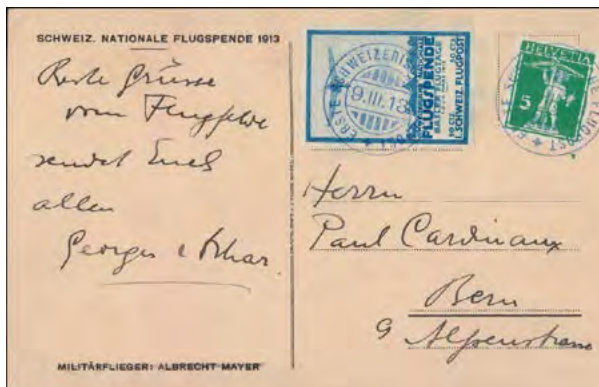 SCHWEIZ. NATIONALE FLUGSPENDE 1913
Beste Grüsse
vom Flugfelde
sendet Euch
allen
Georges
MILITÄRFLIEGER: ALBRECHT MAYER
ERSTE SCHWEIZERI
9.III.13
FLUGSPENDE
I. SCHWEIZ. FLUGPOST
HELVETIA
5
FLUGPOST
Herrn
Paul Cardinaux
Bern
9 Alpenstrasse